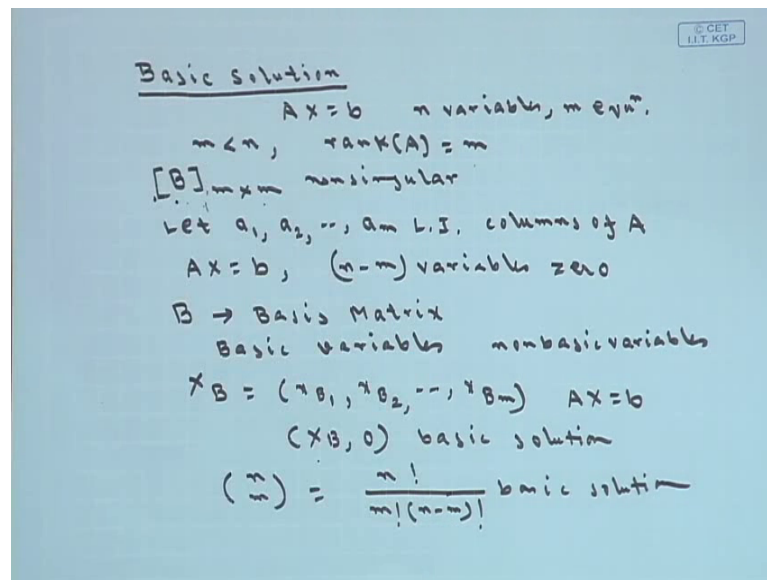 © CET
I.I.T. KGP
Basic solution
AX = b n variables, m eqnⁿ.
m < n, rank(A) = m
[B] m×m nonsingular
Let a₁, a₂, --, aₘ L.I. columns of A
AX = b, (n-m) variables zero
B → Basis Matrix
Basic variables nonbasic variables
X_B = (x_B₁, x_B₂, --, x_Bm) AX = b
(X_B, 0) basic solution
(n m) = n! / m!(n-m)! basic solution